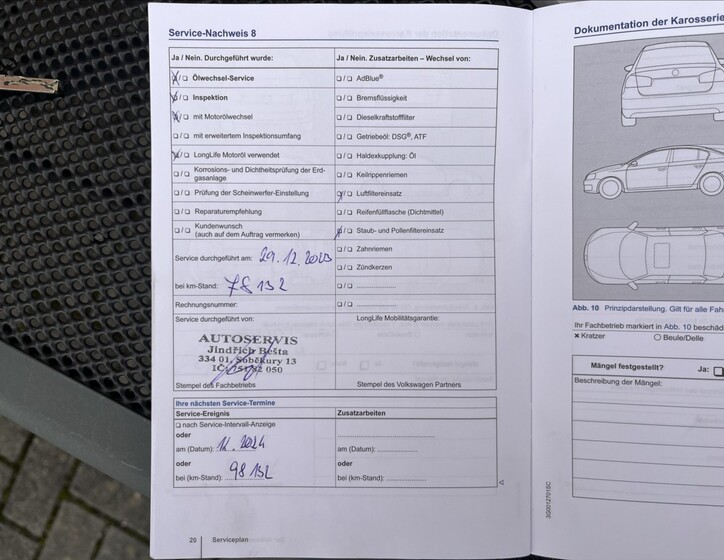 Service-Nachweis 8
Ja / Nein. Durchgeführt wurde:
☒/☐ Ölwechsel-Service
☒/☐ Inspektion
☒/☐ mit Motorölwechsel
☐/☐ mit erweitertem Inspektionsumfang
☒/☐ LongLife Motoröl verwendet
☐/☐ Korrosions- und Dichtheitsprüfung der Erd-
gasanlage
☐/☐ Prüfung der Scheinwerfer-Einstellung
☐/☐ Reparaturempfehlung
☐/☐ Kundenwunsch
(auch auf dem Auftrag vermerken)
Service durchgeführt am: 29.12.2023
bei km-Stand: 78 132
Rechnungsnummer:
Service durchgeführt von:
AUTOSERVIS
Jindřich Bešta
334 01, Soběkury 13
IČ: 050
Stempel des Fachbetriebs
Ja / Nein. Zusatzarbeiten – Wechsel von:
☐/☐ AdBlue®
☐/☐ Bremsflüssigkeit
☐/☐ Dieselkraftstofffilter
☐/☐ Getriebeöl: DSG®, ATF
☐/☐ Haldexkupplung: Öl
☐/☐ Keilrippenriemen
☒/☐ Luftfiltereinsatz
☐/☐ Reifenfüllflasche (Dichtmittel)
☒/☐ Staub- und Pollenfiltereinsatz
☐/☐ Zahnriemen
☐/☐ Zündkerzen
☐/☐ ................
☐/☐ ................
LongLife Mobilitätsgarantie:
Stempel des Volkswagen Partners
Ihre nächsten Service-Termine
Service-Ereignis
☐ nach Service-Intervall-Anzeige
oder
am (Datum): 2024
oder
bei (km-Stand): 98 132
Zusatzarbeiten
am (Datum):
oder
bei (km-Stand):
20 Serviceplan
3G0012701SC
Dokumentation der Karosserie
Abb. 10 Prinzipdarstellung. Gilt für alle Fah
Ihr Fachbetrieb markiert in Abb. 10 beschäd
✖ Kratzer ○ Beule/Delle
Mängel festgestellt? Ja: ☐
Beschreibung der Mängel: